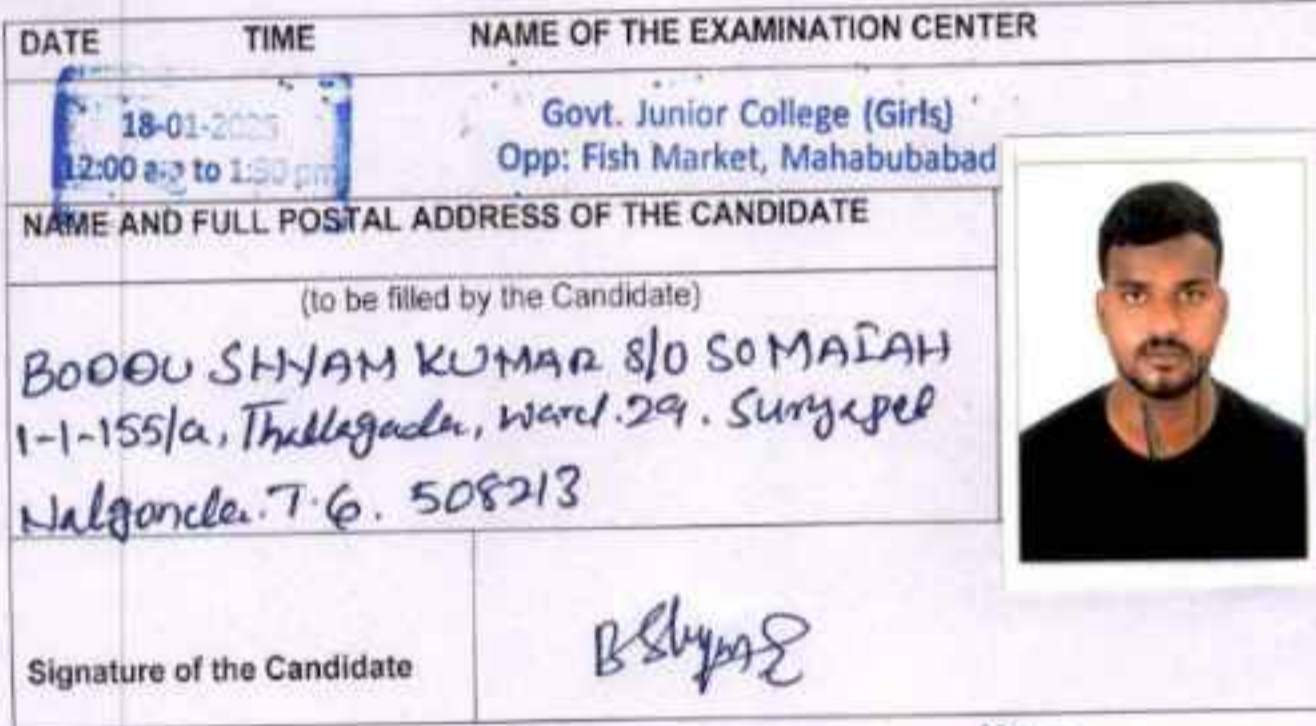 DATE TIME NAME OF THE EXAMINATION CENTER
18-01-2025 Govt. Junior College (Girls)
12:00 to 1:30 pm Opp: Fish Market, Mahabubabad
NAME AND FULL POSTAL ADDRESS OF THE CANDIDATE
(to be filled by the Candidate)
BODDU SHYAM KUMAR S/O SOMAIAH
1-1-155/a, Thallagadda, ward.29. Suryapet
Nalgonda. T.G. 508213
Signature of the Candidate